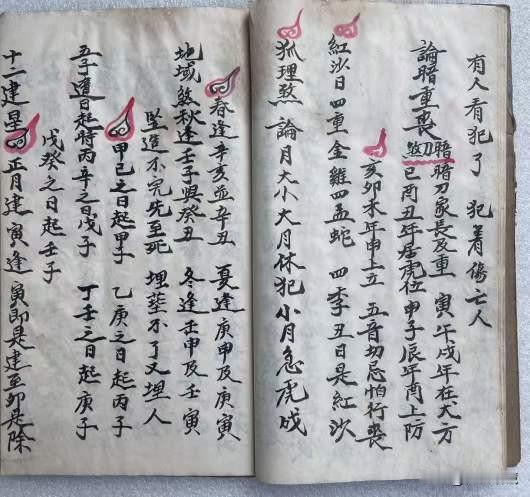 有人看犯了 犯着傷亡人
暗刃家長及重 寅午戌年在犬方
論暗重喪煞 巳酉丑年居虎位 申子辰年酉上防
亥卯未年申上立 五音切忌怕行喪
紅沙日 四重金雞四孟蛇 四季丑日是紅沙
狐理煞 論月大小大月休犯小月急虎戌
春逢辛亥並辛丑 夏逢庚申及庚寅
地域煞秋逢壬子與癸丑 冬逢壬申及壬寅
造不完先至死 埋塟不了又埋人
甲己之日起甲子 乙庚之日起丙子
五子遁日起時丙辛之日戊子 丁壬之日起庚子
戊癸之日起壬子
十二建星 正月建寅逢寅即是建至卯是除